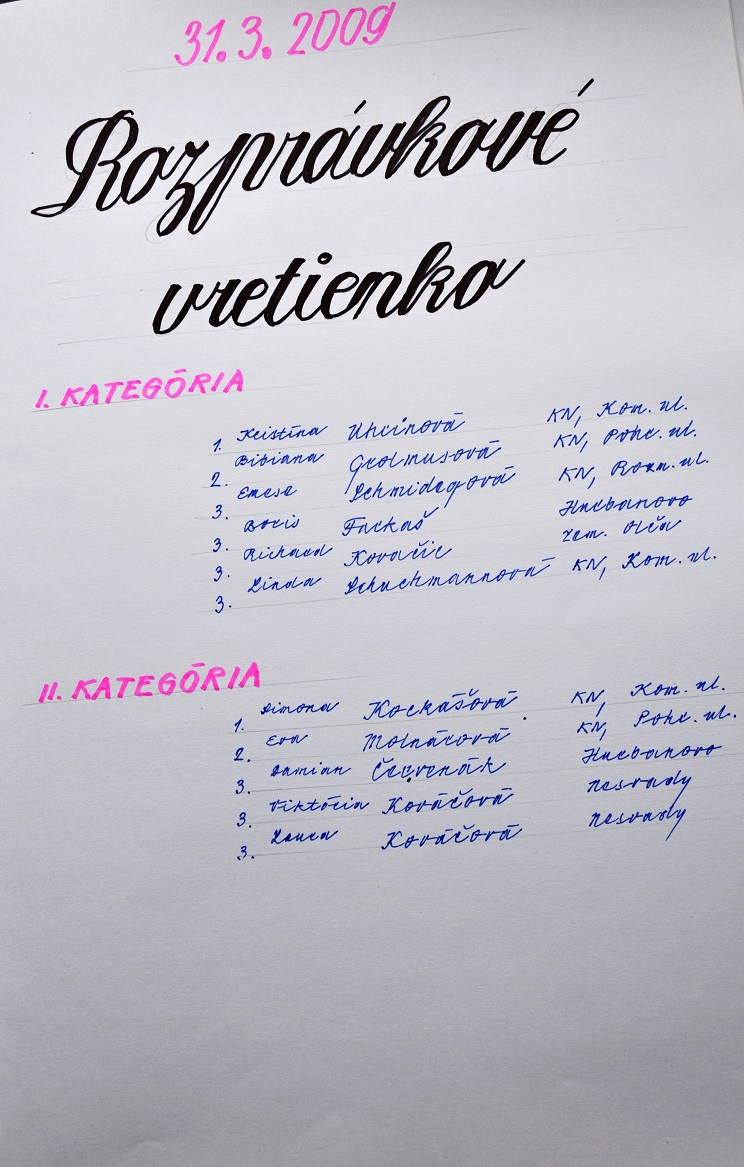 31. 3. 2009
Rozprávkové
vretienko
I. KATEGÓRIA
1. Kristína Uhrinová KN, Kom. ul.
2. Bibiana Grolmusová KN, Pohr. ul.
3. Emese Schmidegová KN, Rozm. ul.
3. Boris Farkaš Hurbanovo
3. Richard Kovačic Zem. Olča
3. Linda Schuchmannová KN, Kom. ul.
II. KATEGÓRIA
1. Simona Kockášová KN, Kom. ul.
2. Eva Molnárová KN, Pohr. ul.
3. Damian Červenák Hurbanovo
3. Viktória Kováčová Nesvady
3. Laura Kováčová Nesvady